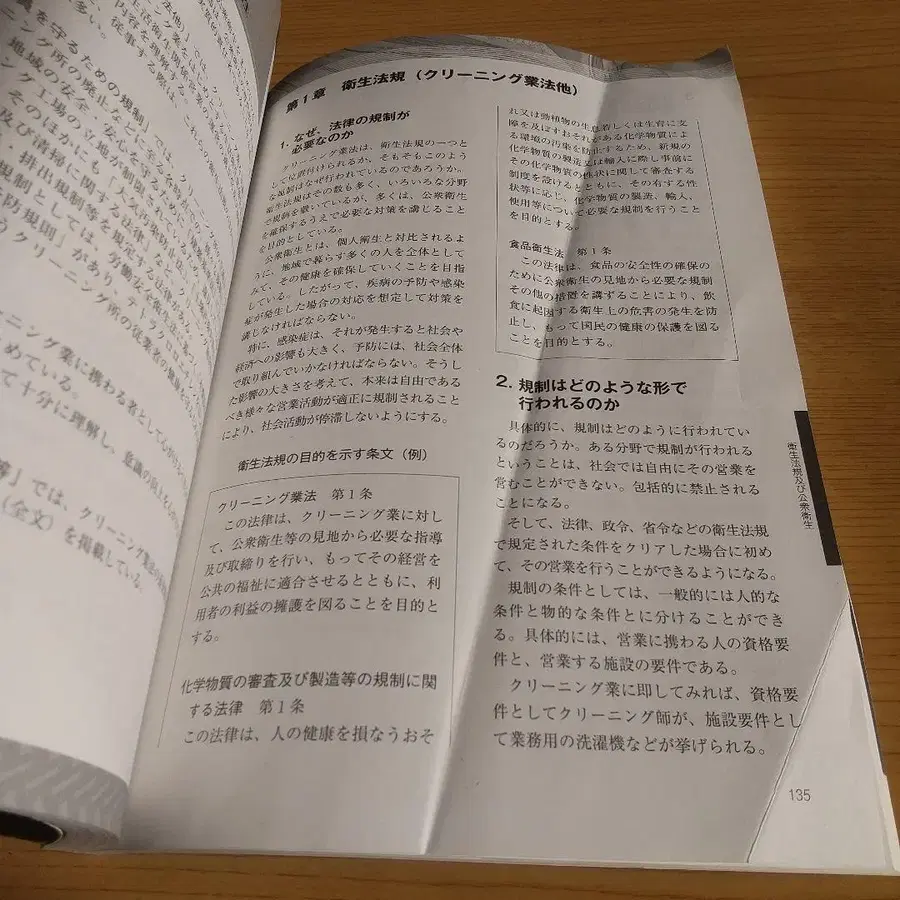 第1章 衛生法規(クリーニング業法他)
1. なぜ、法律の規制が
必要なのか
クリーニング業法は、衛生法規の一つと
して位置付けられるが、そもそもこのよう
な規制はなぜ行われているのであろうか。
衛生法規はその数も多く、いろいろな分野
で規制を敷いているが、多くは、公衆衛生
を確保するうえで必要な対策を講じること
を目的としている。
公衆衛生とは、個人衛生と対比されるよ
うに、地域で暮らす多くの人を全体として
みて、その健康を確保していくことを目指
している。したがって、疾病の予防や感染
症が発生した場合の対応を想定して対策を
講じなければならない。
特に、感染症は、それが発生すると社会や
経済への影響も大きく、予防には、社会全体
で取り組んでいかなければならない。そうし
た影響の大きさを考えて、本来は自由である
べき様々な営業活動が適正に規制されること
により、社会活動が停滞しないようにする。
衛生法規の目的を示す条文(例)
クリーニング業法 第1条
この法律は、クリーニング業に対し
て、公衆衛生等の見地から必要な指導
及び取締りを行い、もってその経営を
公共の福祉に適合させるとともに、利
用者の利益の擁護を図ることを目的と
する。
化学物質の審査及び製造等の規制に関
する法律 第1条
この法律は、人の健康を損なうおそ
れ又は動植物の生息若しくは生育に支
障を及ぼすおそれがある化学物質によ
る環境の汚染を防止するため、新規の
化学物質の製造又は輸入に際し事前に
その化学物質の性状に関して審査する
制度を設けるとともに、その有する性
状等に応じ、化学物質の製造、輸入、
使用等について必要な規制を行うこと
を目的とする。
食品衛生法 第1条
この法律は、食品の安全性の確保の
ために公衆衛生の見地から必要な規制
その他の措置を講ずることにより、飲
食に起因する衛生上の危害の発生を防
止し、もって国民の健康の保護を図る
ことを目的とする。
2. 規制はどのような形で
行われるのか
具体的に、規制はどのように行われてい
るのだろうか。ある分野で規制が行われる
ということは、社会では自由にその営業を
営むことができない。包括的に禁止される
ことになる。
そして、法律、政令、省令などの衛生法規
で規定された条件をクリアした場合に初め
て、その営業を行うことができるようになる。
規制の条件としては、一般的には人的な
条件と物的な条件とに分けることができ
る。具体的には、営業に携わる人の資格要
件と、営業する施設の要件である。
クリーニング業に即してみれば、資格要
件としてクリーニング師が、施設要件とし
て業務用の洗濯機などが挙げられる。
衛生法規及び公衆衛生
135